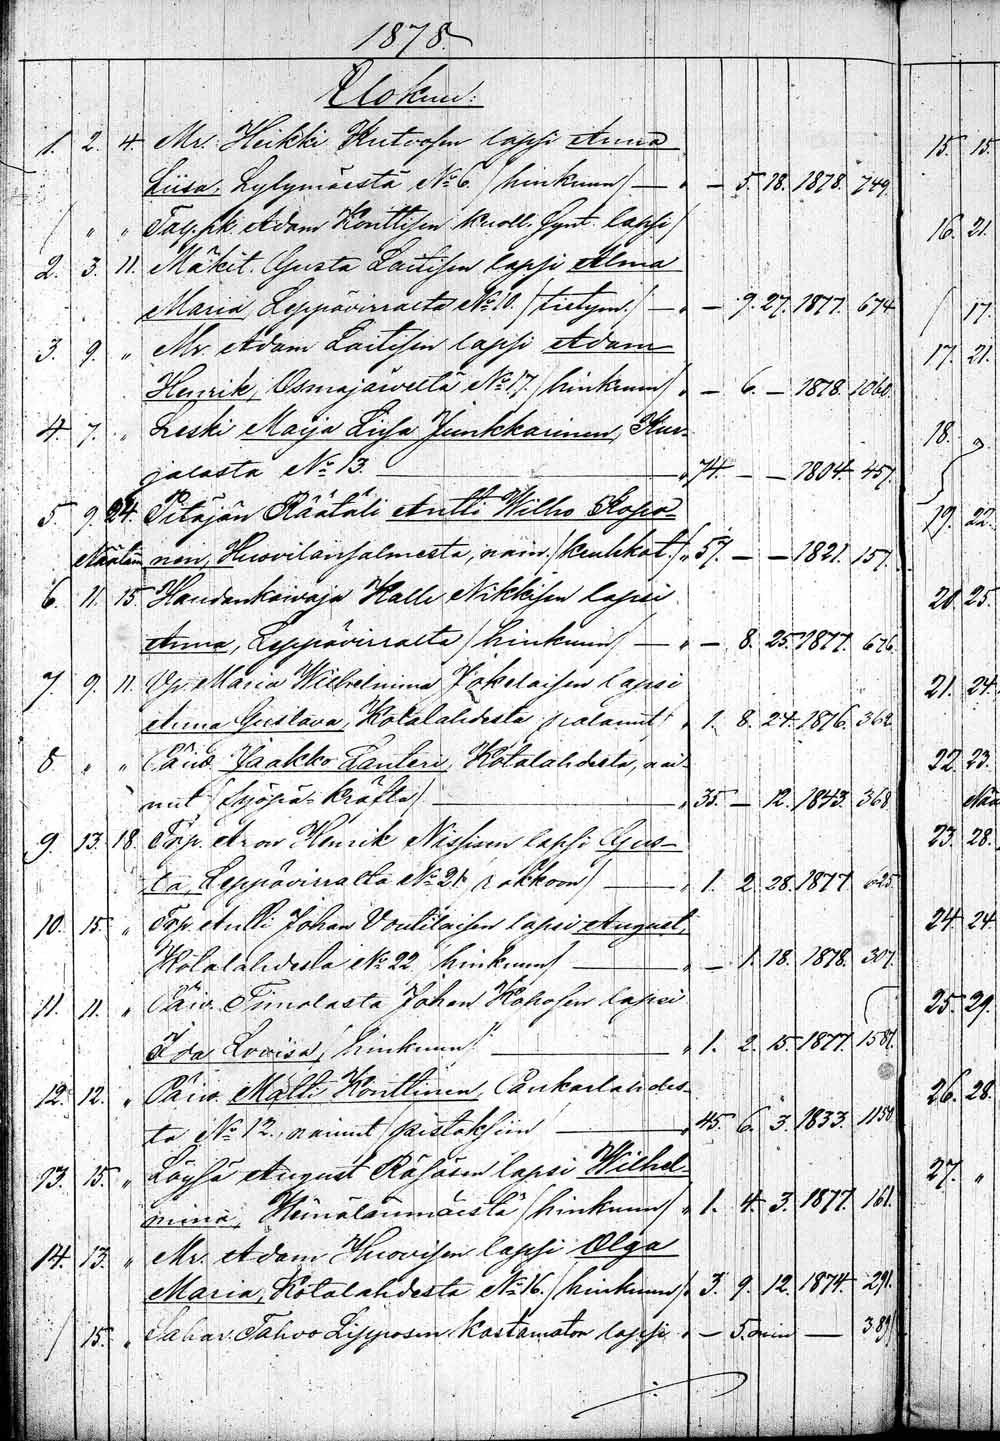 1878.
Elokuu:
1. 2. 4. Mr. Heikki Kutvosen lapsi Anna
Liisa, Lylymäestä No 6. (hinkuun) — „ — 5. 18. 1878. 749.
/ „ „ Adam Konttisen kuoll. synt. lapsi /
2. 3. 11. Mäkit. Gusta Laitisen lapsi Alma
Maria, Leppävirralta No 10. — „ — 9. 27. 1877. 674
3. 9. „ Mr. Adam Laitisen lapsi Adam
Henrik, Osmajärveltä No 17. (hinkuun) „ — 6. — 1878. 1060.
4. 7. „ Leski Maija Liisa Junkkarinen, Kur-
jalasta No 13. — „ 74. — — 1804. 457.
5. 9. 24. Pitäjän Räätäli Antti Wilho Kopo-
nen, Huovilansalmesta, nain. (keuhkot.) „ 57. — — 1821. 157.
6. 11. 15. Haudankaivaja Kalle Nikkisen lapsi
Anna, Leppävirralta (hinkuun) — „ — 8. 25. 1877. 676.
7. 9. 11. Maria Wilhelmina Jokelaisen lapsi
Anna Gustava, Kotalahdesta palanut „ 1. 8. 24. 1876. 362.
8. „ „ Päiv. Jaakko Lanteri, Kotalahdesta, nai-
nut (syöpä-kräfta) — „ 35. — 12. 1843. 368.
9. 13. 18. Trp. Aron Henrik Nissisen lapsi Gus-
ta, Leppävirralta No 21. (rokkoon) — „ 1. 2. 28. 1877. 625.
10. 15. „ Trp. Antti Johan Voutilaisen lapsi August,
Kotalahdesta No 22 (hinkuun) — „ — 1. 18. 1878. 307.
11. 11. „ Päiv. Timolasta Johan Kohosen lapsi
Ida Lovisa, (hinkuun) — „ 1. 2. 15. 1877. 1581.
12. 12. „ Päiv. Matti Konttinen, Paukarlahdes-
ta No 12., nainut (pistoksiin — „ 45. 6. 3. 1833. 1150
13. 15. „ Löysä August Räsäsen lapsi Wilhel-
mina, Heinälänmäestä (hinkuun) „ 1. 4. 3. 1877. 161.
14. 13. „ Mr. Adam Huovisen lapsi Olga
Maria, Kotalahdesta No 16. (hinkuun) „ 3. 9. 12. 1874. 291.
/ 15. „ Tahvo Lipposen kastamaton lapsi „ — 5. min — 389/
15. 15.
16. 21.
/ 17.
17. 21.
18. „
19. 22.
20. 25.
21. 24.
22. 23.
23. 28.
24. 24.
25. 29.
26. 28.
27. „